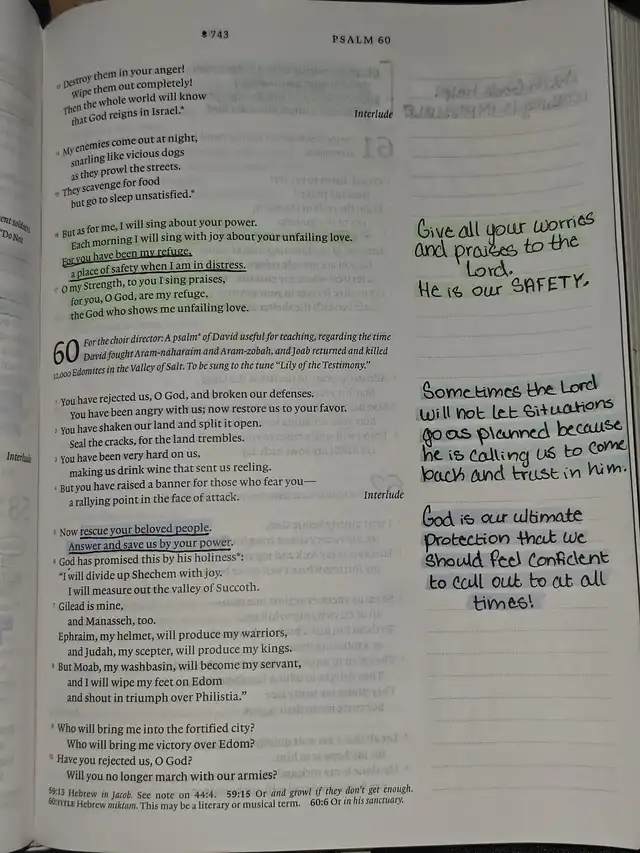 * 743
PSALM 60
13 Destroy them in your anger!
Wipe them out completely!
Then the whole world will know
that God reigns in Israel.*
Interlude
14 My enemies come out at night,
snarling like vicious dogs
as they prowl the streets.
15 They scavenge for food
but go to sleep unsatisfied.*
16 But as for me, I will sing about your power.
Each morning I will sing with joy about your unfailing love.
For you have been my refuge,
a place of safety when I am in distress.
17 O my Strength, to you I sing praises,
for you, O God, are my refuge,
the God who shows me unfailing love.
60 For the choir director: A psalm* of David useful for teaching, regarding the time
David fought Aram-naharaim and Aram-zobah, and Joab returned and killed
12,000 Edomites in the Valley of Salt. To be sung to the tune “Lily of the Testimony.”
1 You have rejected us, O God, and broken our defenses.
You have been angry with us; now restore us to your favor.
2 You have shaken our land and split it open.
Seal the cracks, for the land trembles.
3 You have been very hard on us,
making us drink wine that sent us reeling.
4 But you have raised a banner for those who fear you—
a rallying point in the face of attack.
Interlude
5 Now rescue your beloved people.
Answer and save us by your power.
6 God has promised this by his holiness*:
“I will divide up Shechem with joy.
I will measure out the valley of Succoth.
7 Gilead is mine,
and Manasseh, too.
Ephraim, my helmet, will produce my warriors,
and Judah, my scepter, will produce my kings.
8 But Moab, my washbasin, will become my servant,
and I will wipe my feet on Edom
and shout in triumph over Philistia.”
9 Who will bring me into the fortified city?
Who will bring me victory over Edom?
10 Have you rejected us, O God?
Will you no longer march with our armies?
59:13 Hebrew in Jacob. See note on 44:4. 59:15 Or and growl if they don't get enough.
60:TITLE Hebrew miktam. This may be a literary or musical term. 60:6 Or in his sanctuary.
Give all your worries
and praises to the
Lord.
He is our SAFETY.
Sometimes the Lord
will not let situations
go as planned because
he is calling us to come
back and trust in him.
God is our ultimate
protection that we
should feel confident
to call out to at all
times!
ent soldiers
"Do Not
Interlude